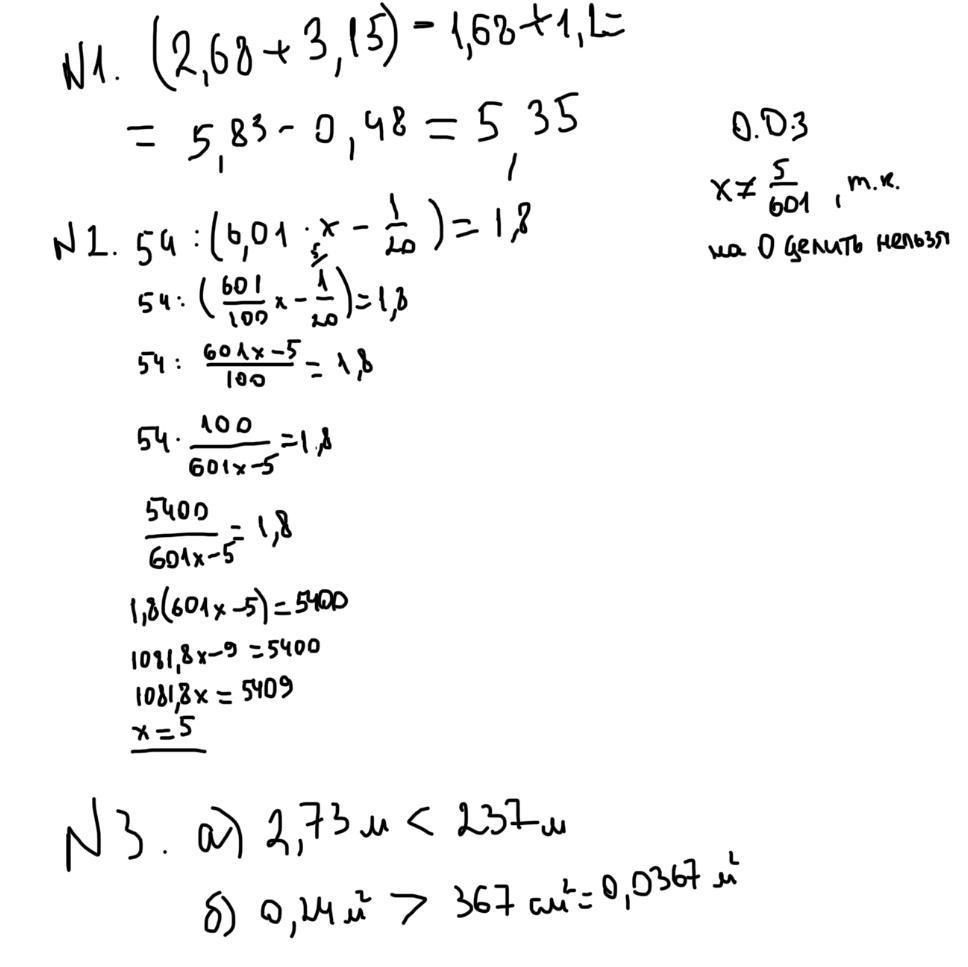 N1. (2,68 + 3,15) - 1,68 + 1,2 =
= 5,83 - 0,48 = 5,35
N2. 54 : (6,01 · x - 1/20) = 1,8
54 : (601/100 x - 1/20 ⁵⁄) = 1,8
54 : (601x-5)/100 = 1,8
54 · 100/(601x-5) = 1,8
5400/(601x-5) = 1,8
1,8(601x-5) = 5400
1081,8x-9 = 5400
1081,8x = 5409
x = 5
О.D.З
x ≠ 5/601, т.к.
на 0 делить нельзя
N3. а) 2,73м < 237м
б) 0,24м² > 367 см² = 0,0367 м²